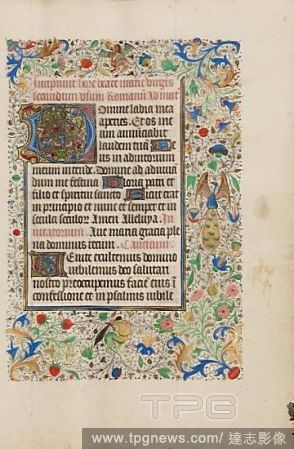 Incipiunt hore beate marie virgis
secundum usum Romanū ad mat
Domine labia mea
aperies. Et os me
um annuciabit
laudem tuā De
us in adiutorium
meum intende. Domine ad adiuuā
dum me festina Gloria patri et
filio et spiritui sancto Sicut erat
in principio et nunc et semper et in
secula seculoꝝ Amen Alleluya. In
uitatorium. Aue maria gracia ple
na dominus tecum. Canticum.
Venite exultemus domino
iubilemus deo salutari
nostro preoccupemus faciē eius ī
confessione et in psalmis iubile
TPG
www.tpgnews.com / 達志影像